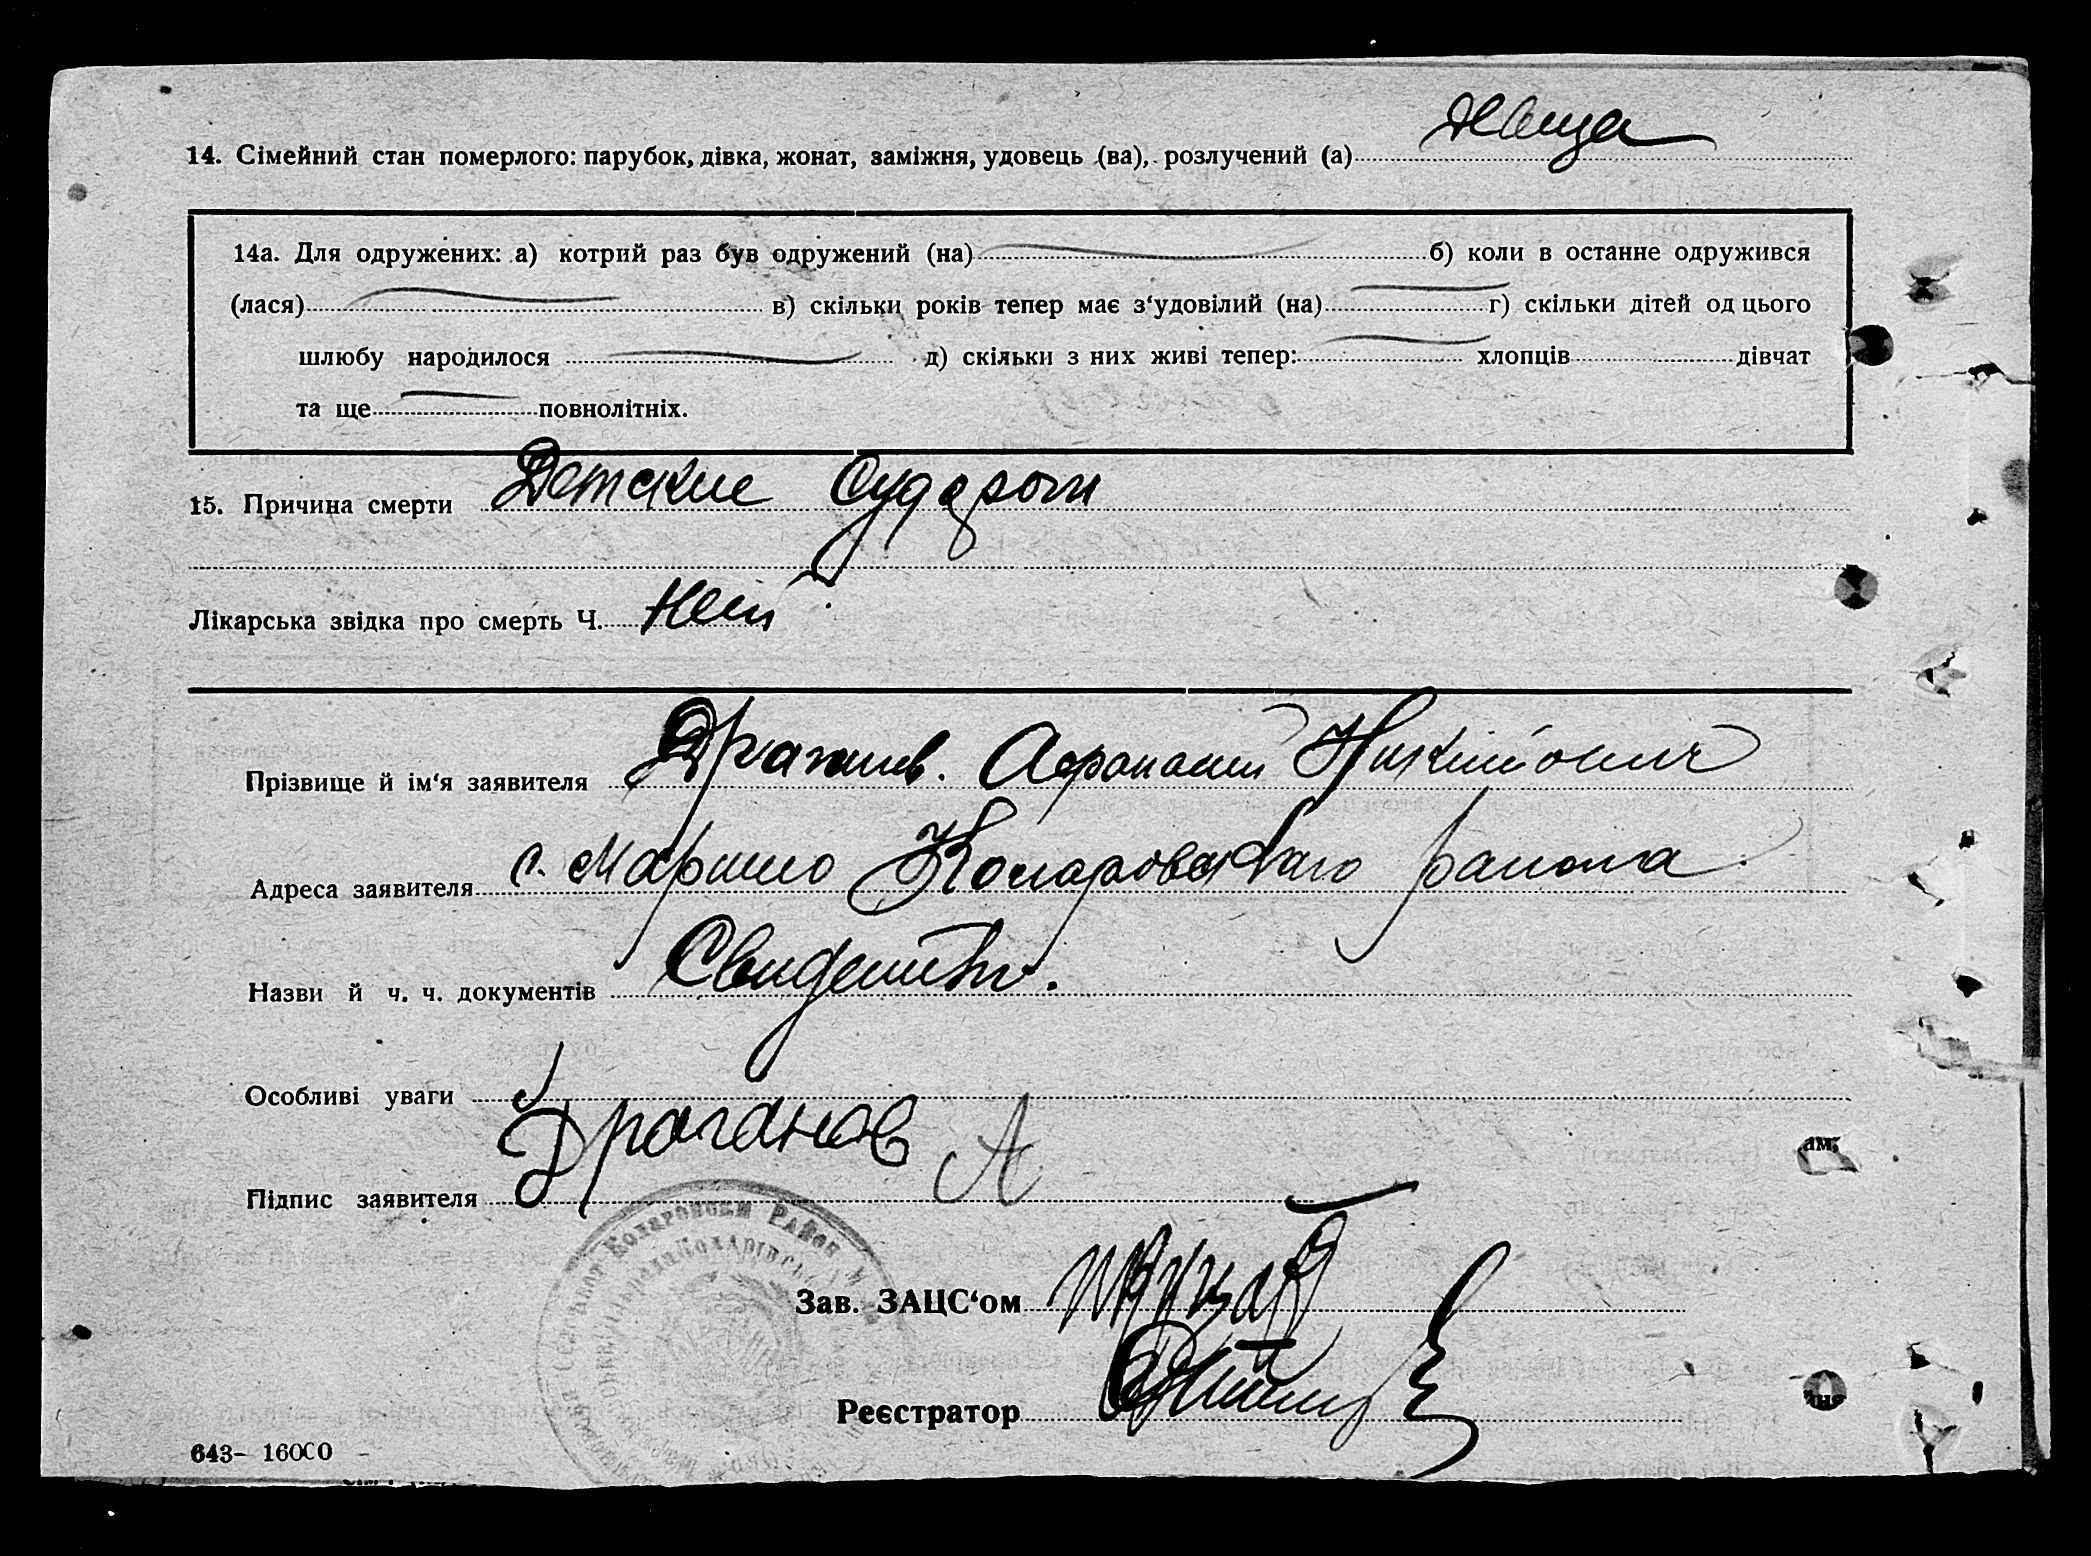 14. Сімейний стан померлого: парубок, дівка, жонат, заміжня, удовець (ва), розлучений (а) девица
14а. Для одружених: а) котрий раз був одружений (на) б) коли в останне одружився
(лася) в) скільки років тепер має з‘удовілий (на) г) скільки дітей од цього
шлюбу народилося д) скільки з них живі тепер: хлопців дівчат
та ще повнолітніх.
15. Причина смерти Детские Судароги
Лікарська звідка про смерть Ч. Нет
Прізвище й ім'я заявителя Афонасий
Адреса заявителя с. района
Назви й ч. ч. документів
Особливі уваги
Драганов А
Підпис заявителя
Зав. ЗАЦС‘ом
Реєстратор
643- 16000